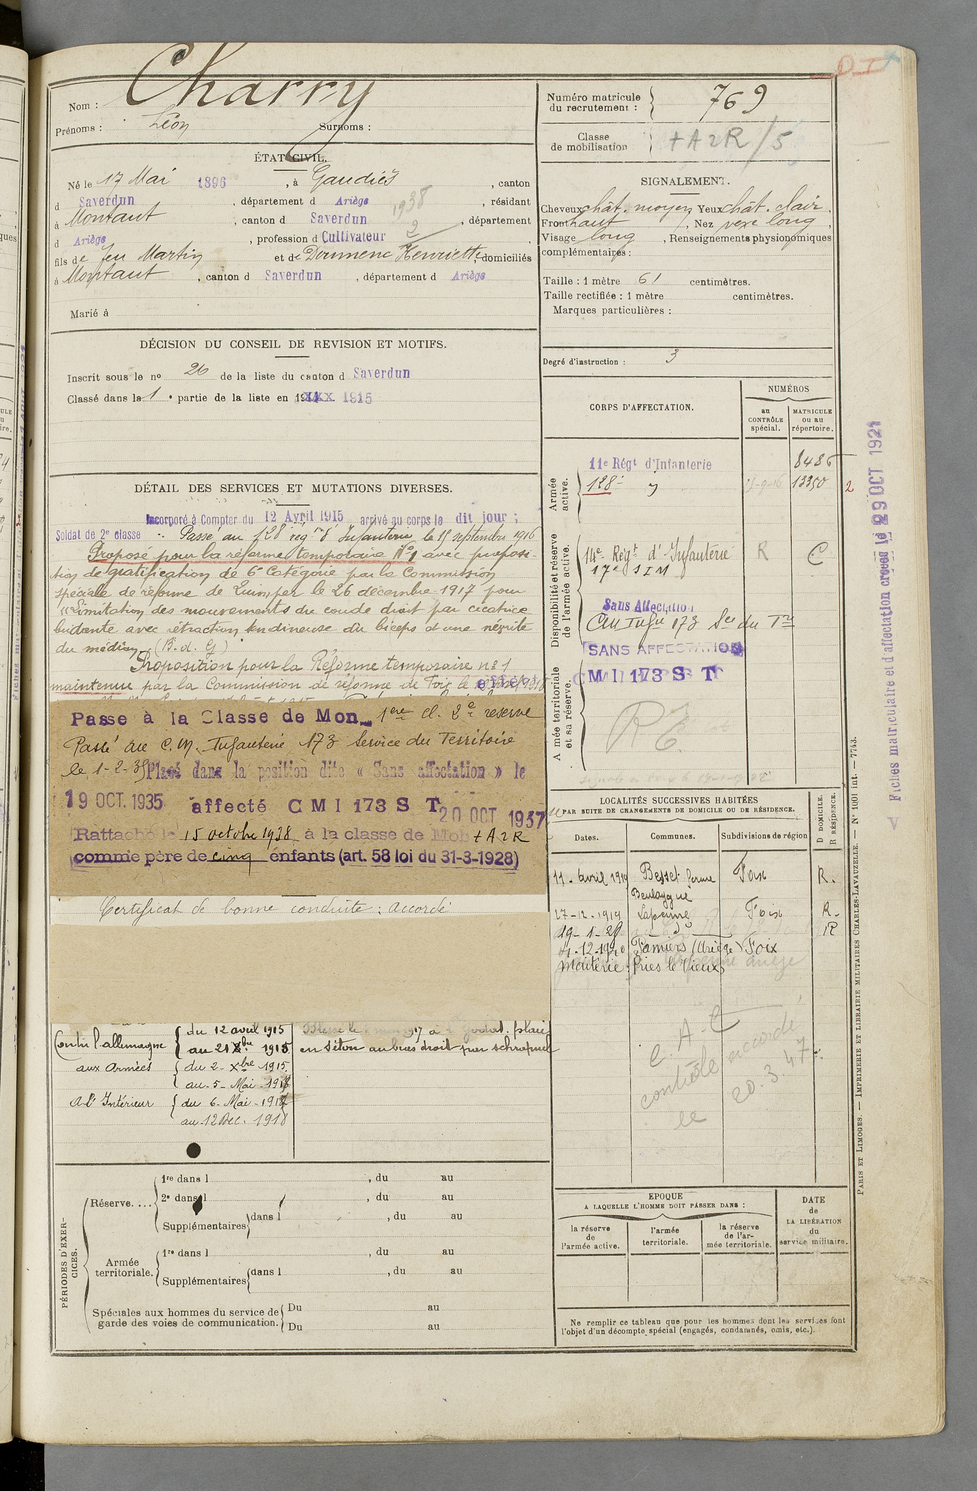 Nom : Charry
Prénoms : Léon Surnoms :
ÉTAT CIVIL.
Né le 17 Mai 1896, à Gaudiès, canton
d Saverdun, département d Ariège, résidant
à Montaut, canton d Saverdun, département
d Ariège, profession d Cultivateur
fils de feu Martin et de Doumenc Henriette domiciliés
à Montaut, canton d Saverdun, département d Ariège
1938
2
Marié à
DÉCISION DU CONSEIL DE REVISION ET MOTIFS.
Inscrit sous le no 26 de la liste du canton d Saverdun
Classé dans la 1e partie de la liste en 1915
DÉTAIL DES SERVICES ET MUTATIONS DIVERSES.
Incorporé à Compter du 12 Avril 1915 arrivé au corps le dit jour ;
Soldat de 2e classe Passé au 128e régnt d'Infanterie, le 15 septembre 1916
Proposé pour la réforme temporaire No1 avec proposi-
tion de gratification de 6e Catégorie par la Commission
spéciale de réforme de Quimper le 26 décembre 1917 pour
"Limitation des mouvements du coude droit par cicatrice
bridante avec rétraction tendineuse du biceps et une névrite
du médian (B. d. G)
Proposition pour la Réforme temporaire no 1
maintenue par la Commission de réforme de Foix le
Passe à la Classe de Mon 1ère cl. 2e réserve
Passé au C. M. Infanterie 173 Service du Territoire
le 1-2-35 Placé dans la position dite « Sans affectation » le
19 OCT. 1935 affecté C M I 173 S T 20 OCT 1937
Rattaché le 15 octobre 1938 à la classe de Mob + A 2 R
comme père de cinq enfants (art. 58 loi du 31-3-1928)
Certificat de bonne conduite : accordé
Contre l'allemagne
du 12 avril 1915
au 21 Xbre 1915
aux Armées
du 2 - Xbre 1915
au 5 - Mai - 1917
à l'Intérieur
du 6 - Mai - 1917
au 12 Déc. 1918
Blessé le 1917 à plaie
en séton au bras droit par schrapnel
PÉRIODES D'EXER-
CICES.
Réserve....
1re dans l , du au
2e dans l , du au
Supplémentaires dans l , du au
Armée
territoriale.
1re dans l , du au
Supplémentaires dans l , du au
Spéciales aux hommes du service de
garde des voies de communication.
Du au
Du au
Numéro matricule
du recrutement : 769
Classe
de mobilisation + A 2 R / 5
SIGNALEMENT.
Cheveux chât. moyen Yeux chât. clair,
Front haut, Nez vexe long,
Visage long, Renseignements physionomiques
complémentaires :
Taille : 1 mètre 61 centimètres.
Taille rectifiée : 1 mètre centimètres.
Marques particulières :
Degré d'instruction : 3
CORPS D'AFFECTATION.
NUMÉROS
au
CONTRÔLE
spécial.
MATRICULE
OU AU
répertoire.
Armée
active.
11e Régt d'Infanterie 8486
128e 13350 2
Disponibilité et réserve
de l'armée active.
14e Régt d'Infanterie R C
17e S I M
Sans Affectation
C M Infie 173 Sce du Tre
SANS AFFECTATION
Armée territoriale
et sa réserve.
C M I 173 S T
LOCALITÉS SUCCESSIVES HABITÉES
PAR SUITE DE CHANGEMENTS DE DOMICILE OU DE RÉSIDENCE.
Dates.
Communes.
Subdivisions de région
D DOMICILE.
R RÉSIDENCE.
11 - avril 1919 Besset ferme Foix R.
Boulogne
27 - 12 - 1919 Lapenne Foix R.
19 - 1 - 29 R
Pamiers (Ariège) Foix
C. A. C
contrôle accordé
le 20.3.47
EPOQUE
A LAQUELLE L'HOMME DOIT PASSER DANS :
la réserve
de
l'armée active.
l'armée
territoriale.
la réserve
de l'ar-
mée territoriale.
DATE
de
LA LIBÉRATION
du
service militaire.
Ne remplir ce tableau que pour les hommes dont les services font
l'objet d'un décompte spécial (engagés, condamnés, omis, etc.).
Fiches matriculaire et d'affectation créées le 29 OCT 1921
PARIS ET LIMOGES. — IMPRIMERIE ET LIBRAIRIE MILITAIRES CHARLES-LAVAUZELLE. — No 1001 int. — 7743.